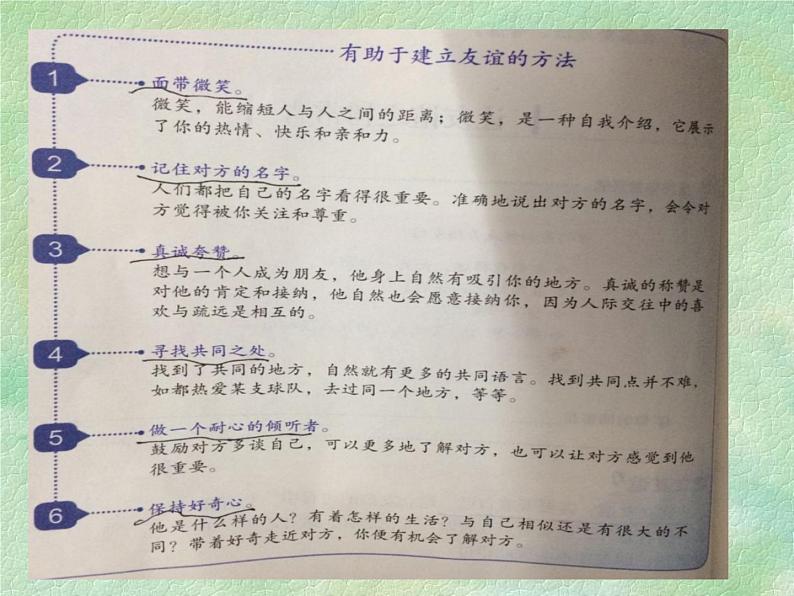 有助于建立友谊的方法
1
面带微笑。
微笑，能缩短人与人之间的距离；微笑，是一种自我介绍，它展示
了你的热情、快乐和亲和力。
2
记住对方的名字。
人们都把自己的名字看得很重要。准确地说出对方的名字，会令对
方觉得被你关注和尊重。
3
真诚夸赞。
想与一个人成为朋友，他身上自然有吸引你的地方。真诚的称赞是
对他的肯定和接纳，他自然也会愿意接纳你，因为人际交往中的喜
欢与疏远是相互的。
4
寻找共同之处。
找到了共同的地方，自然就有更多的共同语言。找到共同点并不难，
如都热爱某支球队，去过同一个地方，等等。
5
做一个耐心的倾听者。
鼓励对方多谈自己，可以更多地了解对方，也可以让对方感觉到他
很重要。
6
保持好奇心。
他是什么样的人？有着怎样的生活？与自己相似还是有很大的不
同？带着好奇走近对方，你便有机会了解对方。